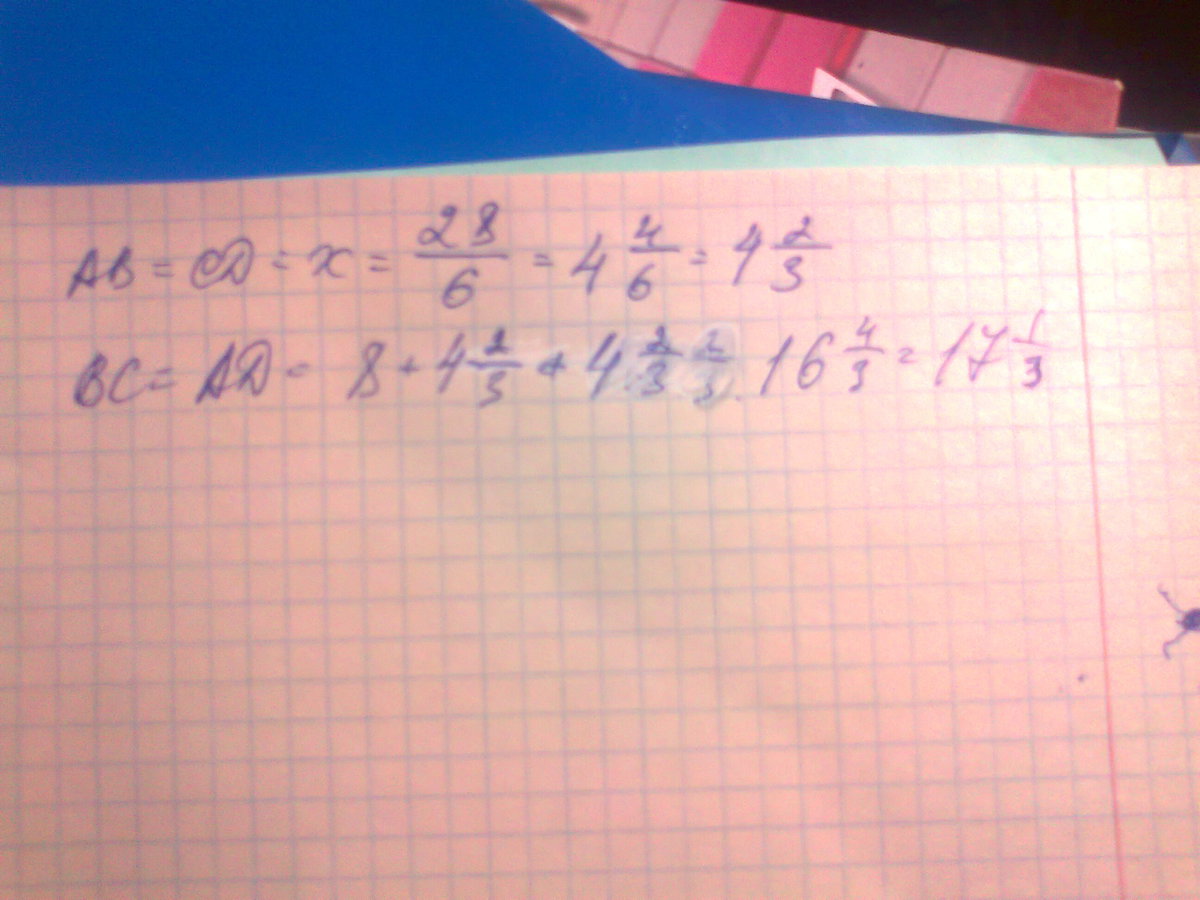 AB = CD = x = 28/6 = 4 4/6 = 4 2/3
BC = AD = 8 + 4 2/3 + 4 2/3 16 4/3 = 17 1/3